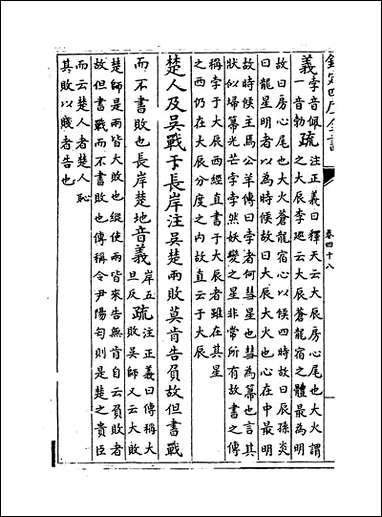 欽定四庫全書
卷四十八
義
孛音佩
一音勃
疏
注正義曰釋天云大辰房心尾也大火謂
之大辰李巡云大辰蒼龍宿之體最為明
故曰房心尾也大火蒼龍宿心以候四時故曰辰孫炎
曰龍星明者以為時候故曰大辰大火也心在中最明
故時候主焉公羊傳曰孛者何彗星也彗為箒也言其
狀似埽箒光芒孛孛然妖變之星非常所有故書之傳
稱孛于大辰西經直書于大辰者雖在其星
之西仍在大辰分度之内故直云于大辰
楚人及吳戰于長岸注吳楚兩敗莫肯告負故但書戰
而不書敗也長岸楚地音義
岸五
旦反
疏
注正義曰傳稱大
敗吳師又云大敗
楚師是兩皆大敗也縱使兩皆來告無肯自云負敗者
故但書戰而不書敗也傳稱令尹陽匄則是楚之貴臣
而云人者楚人恥
其敗以賤者告也